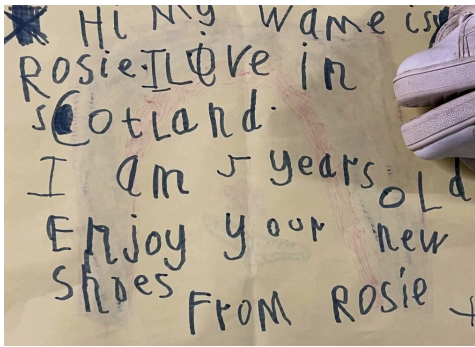 Hi My Wame is
Rosie. I LOve in
scotland.
I am 5 years OLd
Enjoy your new
Shoes
From Rosie